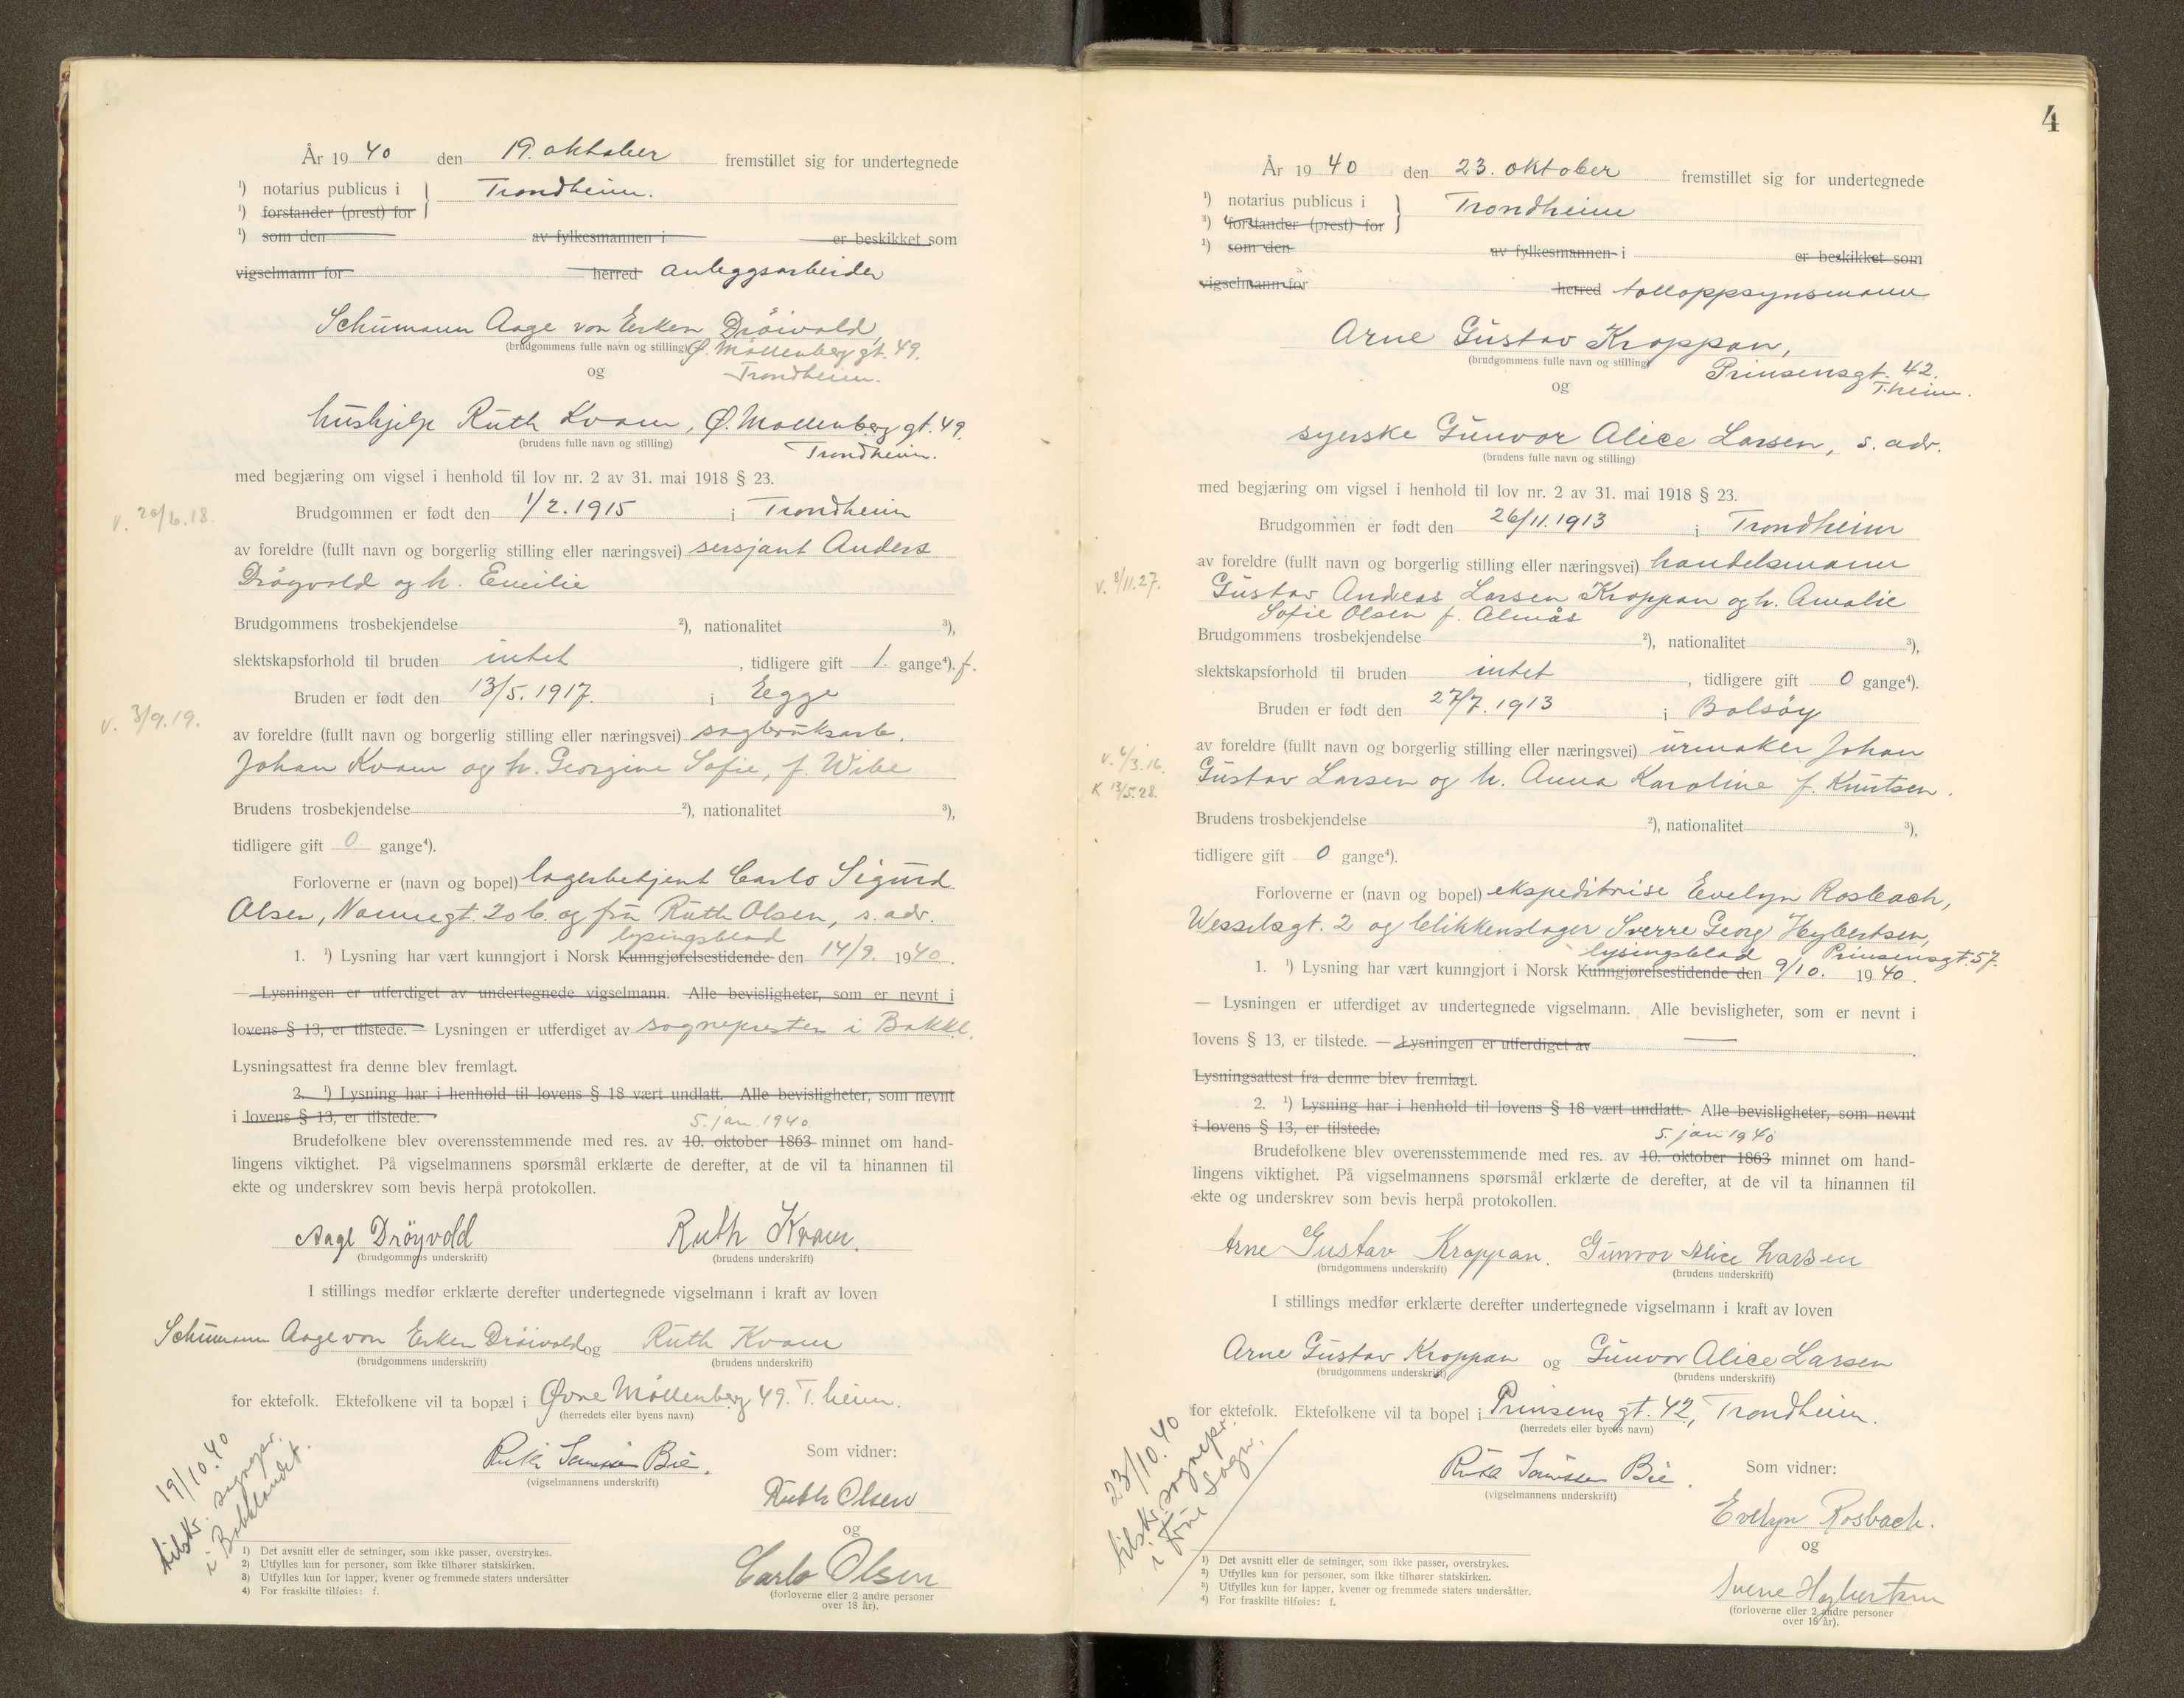 År 19 40 den 19. oktober fremstillet sig for undertegnede
¹) notarius publicus i } Trondheim.
¹) forstander (prest) for
¹) som den av fylkesmannen i er beskikket som
vigselmann for herred anleggsarbeider
Schumann Aage von Erken Dröivold,
(brudgommens fulle navn og stilling) Ø. Möllenberg gt. 49.
og Trondheim.
hushjelp Ruth Kvam, Ø. Mollenberg gt. 49.
(brudens fulle navn og stilling) Trondheim.
med begjæring om vigsel i henhold til lov nr. 2 av 31. mai 1918 § 23.
v. 20/6.18. Brudgommen er født den 1/2. 1915 i Trondheim
av foreldre (fullt navn og borgerlig stilling eller næringsvei) sersjant Anders
Dröyvold og h. Emilie
Brudgommens trosbekjendelse ²), nationalitet ³),
slektskapsforhold til bruden intet, tidligere gift 1. gange⁴). f.
Bruden er født den 13/5. 1917. i Egge
v. 3/9.19.
av foreldre (fullt navn og borgerlig stilling eller næringsvei) sagbruksarb.
Johan Kvam og h. Georgine Sofie, f. Wibe
Brudens trosbekjendelse ²), nationalitet ³),
tidligere gift 0 gange⁴).
Forloverne er (navn og bopel) lagerbetjent Carlo Sigurd
Olsen, Nonnegt. 20 b. og fru Ruth Olsen, s. adr.
lysingsblad
1. ¹) Lysning har vært kunngjort i Norsk Kunngjørelsestidende den 14/9. 1940.
— Lysningen er utferdiget av undertegnede vigselmann. Alle bevisligheter, som er nevnt i
lovens § 13, er tilstede. — Lysningen er utferdiget av sognepresten i Bakke.
Lysningsattest fra denne blev fremlagt.
2. ¹) Lysning har i henhold til lovens § 18 vært undlatt. Alle bevisligheter, som nevnt
i lovens § 13, er tilstede.
5. jan. 1940
Brudefolkene blev overensstemmende med res. av 10. oktober 1863 minnet om hand-
lingens viktighet. På vigselmannens spørsmål erklærte de derefter, at de vil ta hinannen til
ekte og underskrev som bevis herpå protokollen.
Aage Dröyvold Ruth Kvam.
(brudgommens underskrift) (brudens underskrift)
I stillings medfør erklærte derefter undertegnede vigselmann i kraft av loven
Schumann Aage von Erken Dröivold og Ruth Kvam
(brudgommens underskrift) (brudens underskrift)
for ektefolk. Ektefolkene vil ta bopæl i Øvre Möllenberg 49. T.heim.
(herredets eller byens navn)
Ruth Bie. Som vidner:
(vigselmannens underskrift)
Ruth Olsen
og
Carlo Olsen
(forloverne eller 2 andre personer
over 18 år).
19/10.40
tilskr. sognepr.
i Bakklandet.
1) Det avsnitt eller de setninger, som ikke passer, overstrykes.
2) Utfylles kun for personer, som ikke tilhører statskirken.
3) Utfylles kun for lapper, kvener og fremmede staters undersåtter
4) For fraskilte tilføies: f.
4
År 19 40 den 23. oktober fremstillet sig for undertegnede
¹) notarius publicus i } Trondheim
²) forstander (prest) for
¹) som den av fylkesmannen i er beskikket som
vigselmann for herred tolloppsynsmann
Arne Gustav Kroppan,
(brudgommens fulle navn og stilling) Prinsensgt. 42.
og T.heim.
syerske Gunvor Alice Larsen, s. adr.
(brudens fulle navn og stilling)
med begjæring om vigsel i henhold til lov nr. 2 av 31. mai 1918 § 23.
Brudgommen er født den 26/11. 1913 i Trondheim
av foreldre (fullt navn og borgerlig stilling eller næringsvei) handelsmann
v. 8/11.27. Gustav Andreas Larsen Kroppan og h. Amalie
Sofie Olsen f. Almås
Brudgommens trosbekjendelse ²), nationalitet ³),
slektskapsforhold til bruden intet, tidligere gift 0 gange⁴).
Bruden er født den 27/7. 1913 i Bolsöy
av foreldre (fullt navn og borgerlig stilling eller næringsvei) urmaker Johan
v. 4/3.16.
K 13/5.28. Gustav Larsen og h. Anna Karoline f. Knutsen.
Brudens trosbekjendelse ²), nationalitet ³),
tidligere gift 0 gange⁴).
Forloverne er (navn og bopel) ekspeditrise Evelyn Rosbach,
Wesselsgt. 2 og blikkenslager Sverre Georg Hybertsen,
lysingsblad Prinsensgt. 57.
1. ¹) Lysning har vært kunngjort i Norsk Kunngjørelsestidende den 9/10. 1940.
— Lysningen er utferdiget av undertegnede vigselmann. Alle bevisligheter, som er nevnt i
lovens § 13, er tilstede. — Lysningen er utferdiget av —
Lysningsattest fra denne blev fremlagt.
2. ¹) Lysning har i henhold til lovens § 18 vært undlatt. Alle bevisligheter, som nevnt
i lovens § 13, er tilstede.
5. jan 1940
Brudefolkene blev overensstemmende med res. av 10. oktober 1863 minnet om hand-
lingens viktighet. På vigselmannens spørsmål erklærte de derefter, at de vil ta hinannen til
ekte og underskrev som bevis herpå protokollen.
Arne Gustav Kroppan. Gunvor Alice Larsen
(brudgommens underskrift) (brudens underskrift)
I stillings medfør erklærte derefter undertegnede vigselmann i kraft av loven
Arne Gustav Kroppan og Gunvor Alice Larsen
(brudgommens underskrift) (brudens underskrift)
for ektefolk. Ektefolkene vil ta bopel i Prinsens gt. 42, Trondheim.
(herredets eller byens navn)
Bie. Som vidner:
(vigselmannens underskrift)
Evelyn Rosbach.
og
Sverre Hybertsen
(forloverne eller 2 andre personer
over 18 år).
23/10.40
tilskr. sognepr.
i sogn.
1) Det avsnitt eller de setninger, som ikke passer, overstrykes.
2) Utfylles kun for personer, som ikke tilhører statskirken.
3) Utfylles kun for lapper, kvener og fremmede staters undersåtter.
4) For fraskilte tilføies: f.